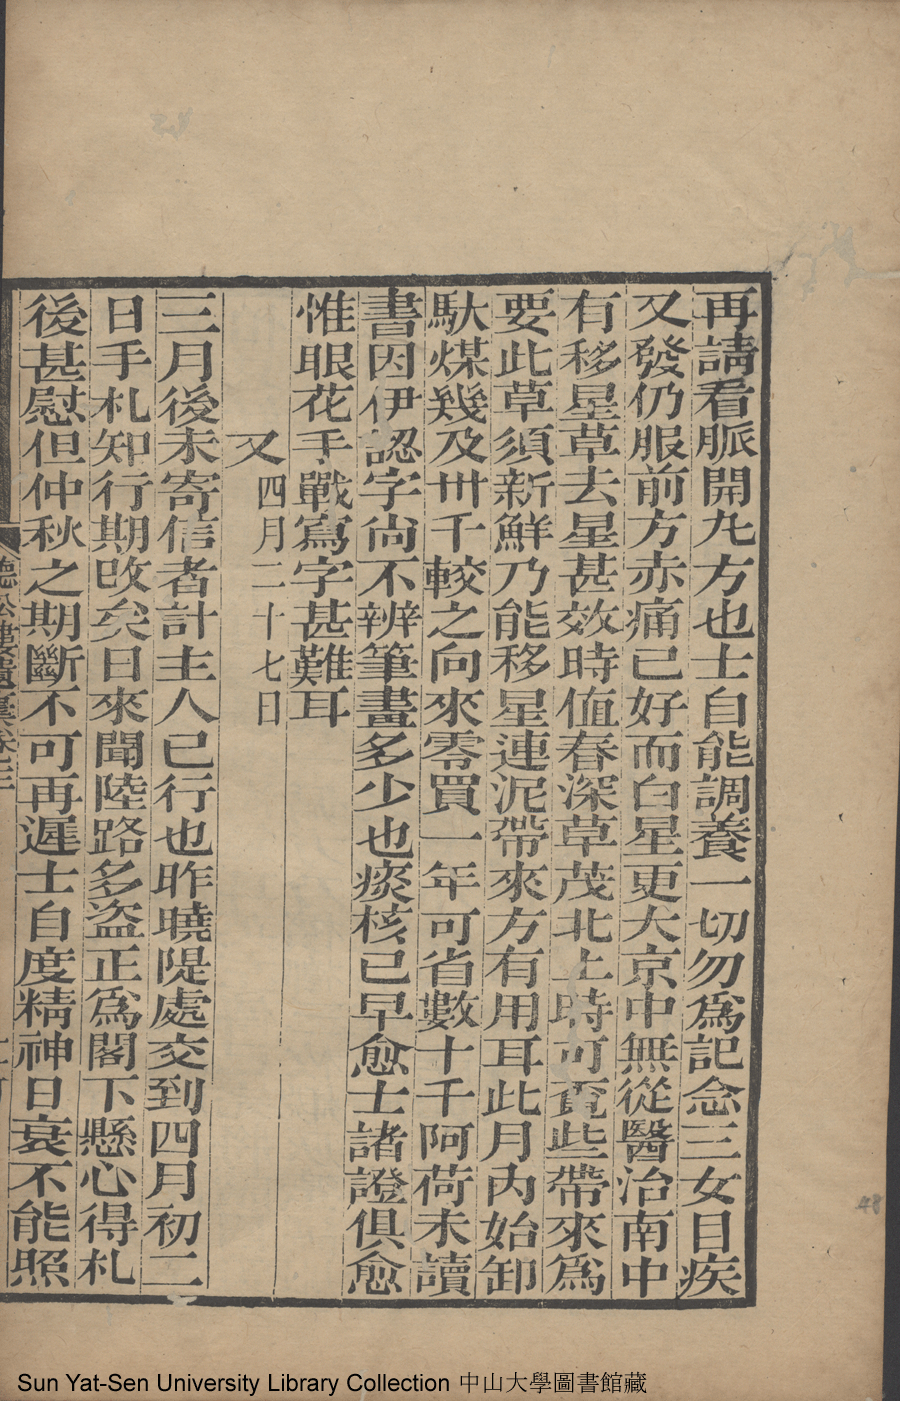 再請看脈開九方也士自能調養一切勿爲記念三女目疾
又發仍服前方赤痛已好而白星更大京中無從醫治南中
有移星草去星甚效時值春深草茂北上時可覔些帶來爲
要此草須新鮮乃能移星連泥帶來方有用耳此月內始卸
馱煤幾及卅千較之向來零買一年可省數十千阿荷未讀
書因伊認字尙不辨筆畫多少也痰核已早愈士諸證俱愈
惟眼花手戰寫字甚難耳
又四月二十七日
三月後未寄信者計主人已行也昨曉隄處交到四月初二
日手札知行期改矣日來聞陸路多盜正爲閣下懸心得札
後甚慰但仲秋之期斷不可再遲士自度精神日衰不能照
聽松樓遺稾卷三
Sun Yat-Sen University Library Collection 中山大學圖書館藏